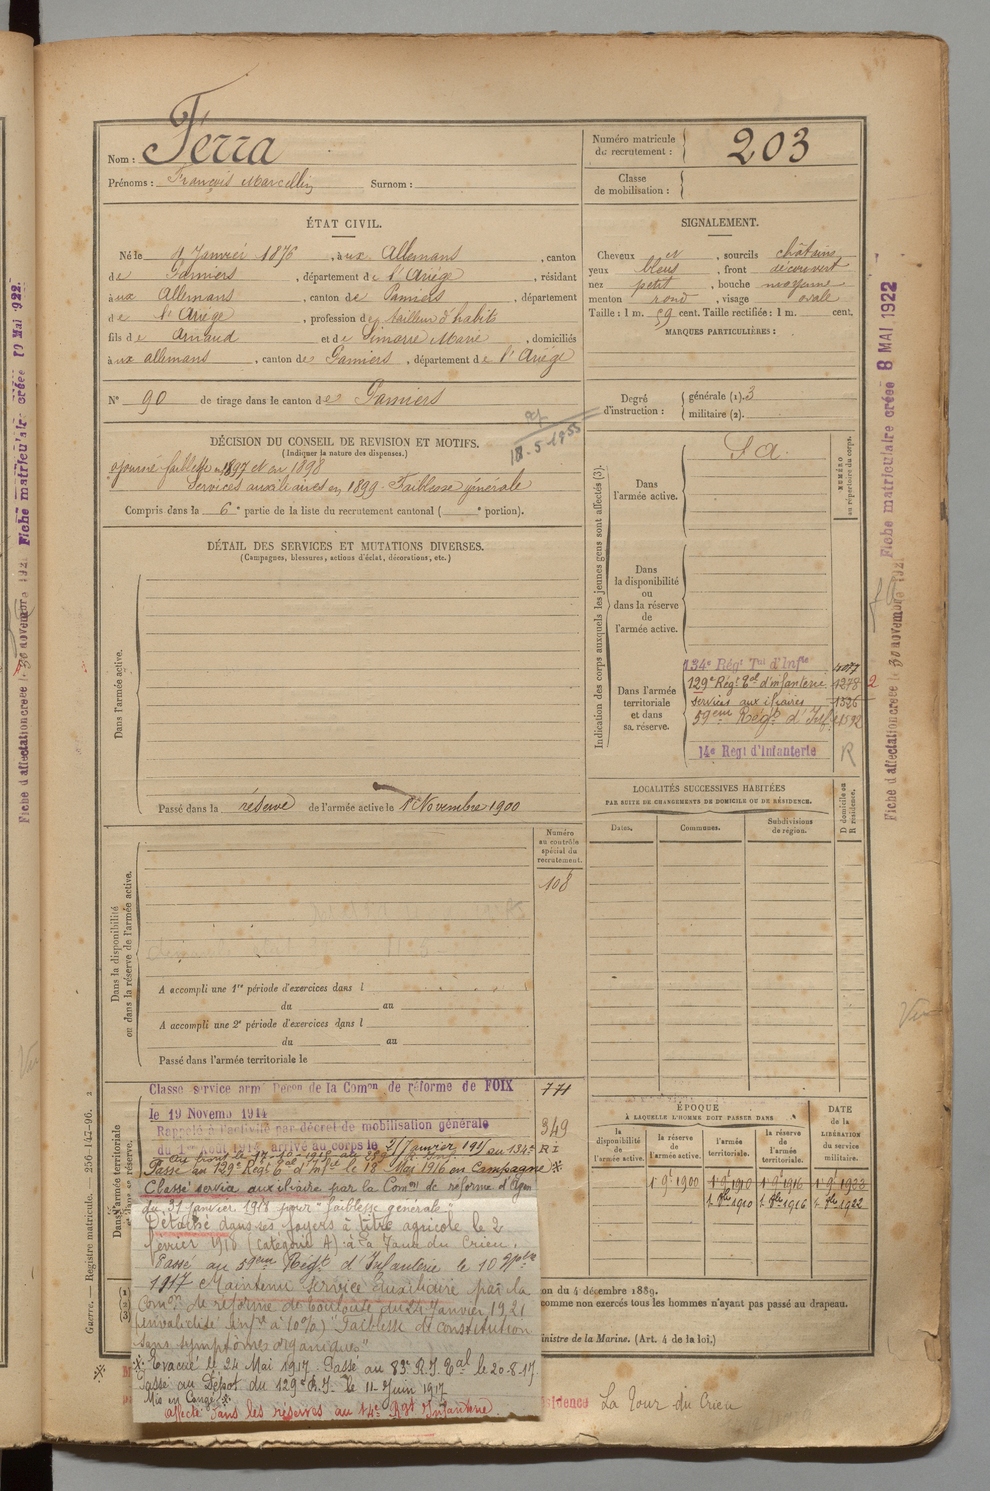 Nom : Ferra
Prénoms : François Marcellin Surnom :
Numéro matricule du recrutement : 203
Classe de mobilisation :
ÉTAT CIVIL.
Né le Janvier 1876, à aux Allemans, canton
de Pamiers, département de l'Ariège, résidant
à aux Allemans, canton de Pamiers, département
de l'Ariège, profession de tailleur d'habits
fils de Arnaud et de Simorre Marie, domiciliés
à aux allemans, canton de Pamiers, département de l'Ariège
N° 90 de tirage dans le canton de Pamiers
SIGNALEMENT.
Cheveux et, sourcils châtains
yeux bleus, front découvert
nez petit, bouche moyenne
menton rond, visage ovale
Taille : 1 m. 59 cent. Taille rectifiée : 1 m. cent.
MARQUES PARTICULIÈRES :
Degré d'instruction : générale (1). 3
militaire (2).
18-5-1955
DÉCISION DU CONSEIL DE REVISION ET MOTIFS.
(Indiquer la nature des dispenses.)
ajourné faiblesse en 1897 et en 1898
Services auxiliaires en 1899. Faiblesse générale
Compris dans la 6e partie de la liste du recrutement cantonal ( e portion).
DÉTAIL DES SERVICES ET MUTATIONS DIVERSES.
(Campagnes, blessures, actions d'éclat, décorations, etc.)
Dans l'armée active.
Passé dans la réserve de l'armée active le 1er Novembre 1900
Indication des corps auxquels les jeunes gens sont affectés (3).
NUMÉRO au répertoire du corps.
Dans l'armée active.
S A.
Dans la disponibilité ou dans la réserve de l'armée active.
Dans l'armée territoriale et dans sa réserve.
134e Régt Tal d'Infie
129e Régt Tal d'infanterie 1278 2
services auxiliaires 1326
59ème Régt d'Inf
14e Regt d'Infanterie R
LOCALITÉS SUCCESSIVES HABITÉES
PAR SUITE DE CHANGEMENTS DE DOMICILE OU DE RÉSIDENCE.
Dates. Communes. Subdivisions de région.
D domicile ou R résidence.
Numéro au contrôle spécial du recrutement.
108
Dans la disponibilité ou dans la réserve de l'armée active.
A accompli une 1re période d'exercices dans l
du au
A accompli une 2e période d'exercices dans l
du au
Passé dans l'armée territoriale le
Dans l'armée territoriale et dans sa réserve.
Classe service armé Décon de la Comon de réforme de FOIX 771
le 19 Novembre 1914
Rappelé à l'activité par décret de mobilisation générale 349
du 1er Aout 1914, arrivé au corps le 21 Janvier 1915 au 134e R I
Passé au 129e Régt Tal d'Infie le 12 Mai 1916 en Campagne
Classé service auxiliaire par la Comon de réforme d'Agen
du 31 Janvier 1918 pour "faiblesse générale"
Détaché dans ses foyers à titre agricole le 2
février 1918 (catégorie A) à La Tour du Crieu.
Passé au 59ème Régt d'Infanterie le 10 7bre
1917 Maintenu Service Auxiliaire par la
Comon de réforme de Toulouse du 24 Janvier 1921
(invalidité infre à 10%) "Faiblesse de constitution
sans symptômes organiques"
Evacué le 24 Mai 1917. Passé au 83e R.I. Tal le 20-8-17
Passé au Dépot du 129e R.I. le 11 Juin 1917
Mis en Congé
affecté dans les réserves au 14e Rgt Infanterie.
ÉPOQUE
À LAQUELLE L'HOMME DOIT PASSER DANS
la disponibilité de l'armée active. la réserve de l'armée active. l'armée territoriale. la réserve de l'armée territoriale.
DATE de la LIBÉRATION du service militaire.
1er 9bre 1900 1er 9bre 1910 1er 9bre 1916 1er 9bre 1922
1er 8bre 1910 1er 8bre 1916 1er 8bre 1922
on du 4 décembre 1889.
comme non exercés tous les hommes n'ayant pas passé au drapeau.
inistre de la Marine. (Art. 4 de la loi.)
sidence La Tour du Crieu
Guerre. — Registre matricule. — 256-147-96.
Fiche matriculaire créée 8 MAI 1922
Fiche d'affectation créée le 30 novembre 192
Fiche matriculaire créée 10 Mai 1922.
Fiche d'affectation créée le 30 novembre 192